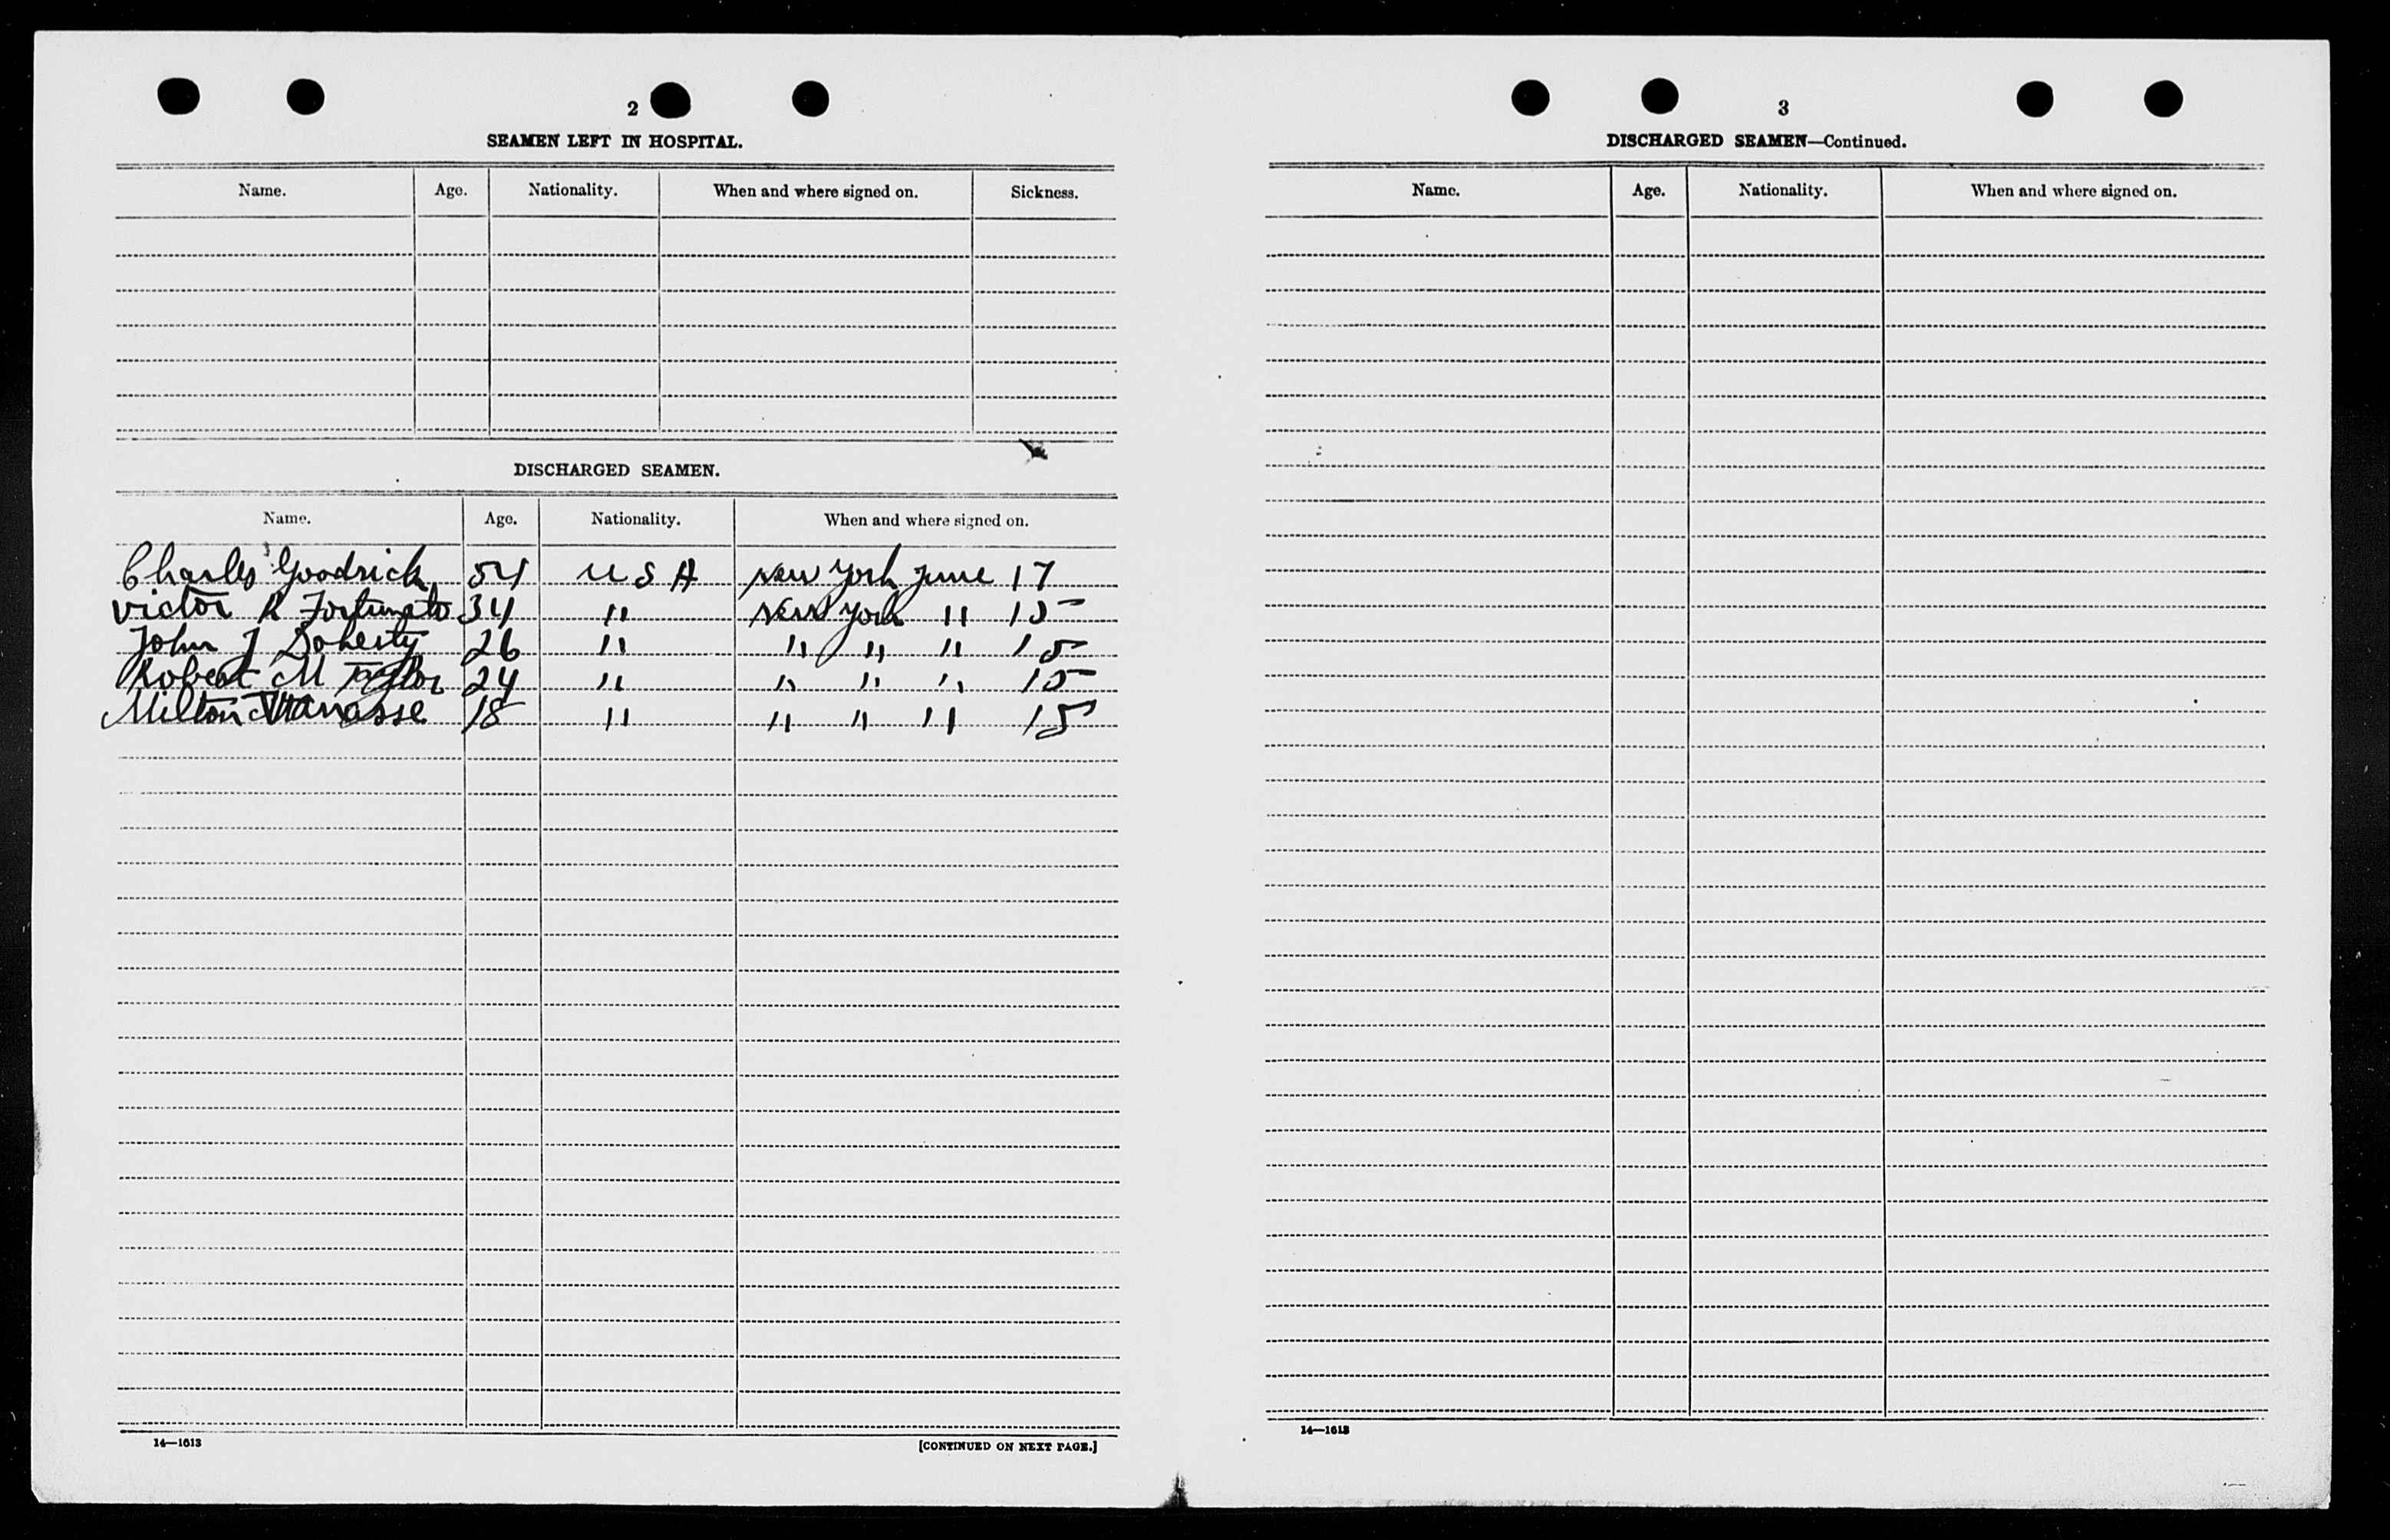 2
SEAMEN LEFT IN HOSPITAL.
Name. Age. Nationality. When and where signed on. Sickness.
DISCHARGED SEAMEN.
Name. Age. Nationality. When and where signed on.
Charles Goodrick 54 U S A New York June 17
Victor R Fortunato 34 " New York " 15
John J Doherty 26 " " " " 15
Robert M Taylor 24 " " " " 15
Milton Manasse 18 " " " " 15
14—1613
[CONTINUED ON NEXT PAGE.]
3
DISCHARGED SEAMEN—Continued.
Name. Age. Nationality. When and where signed on.
14—1613